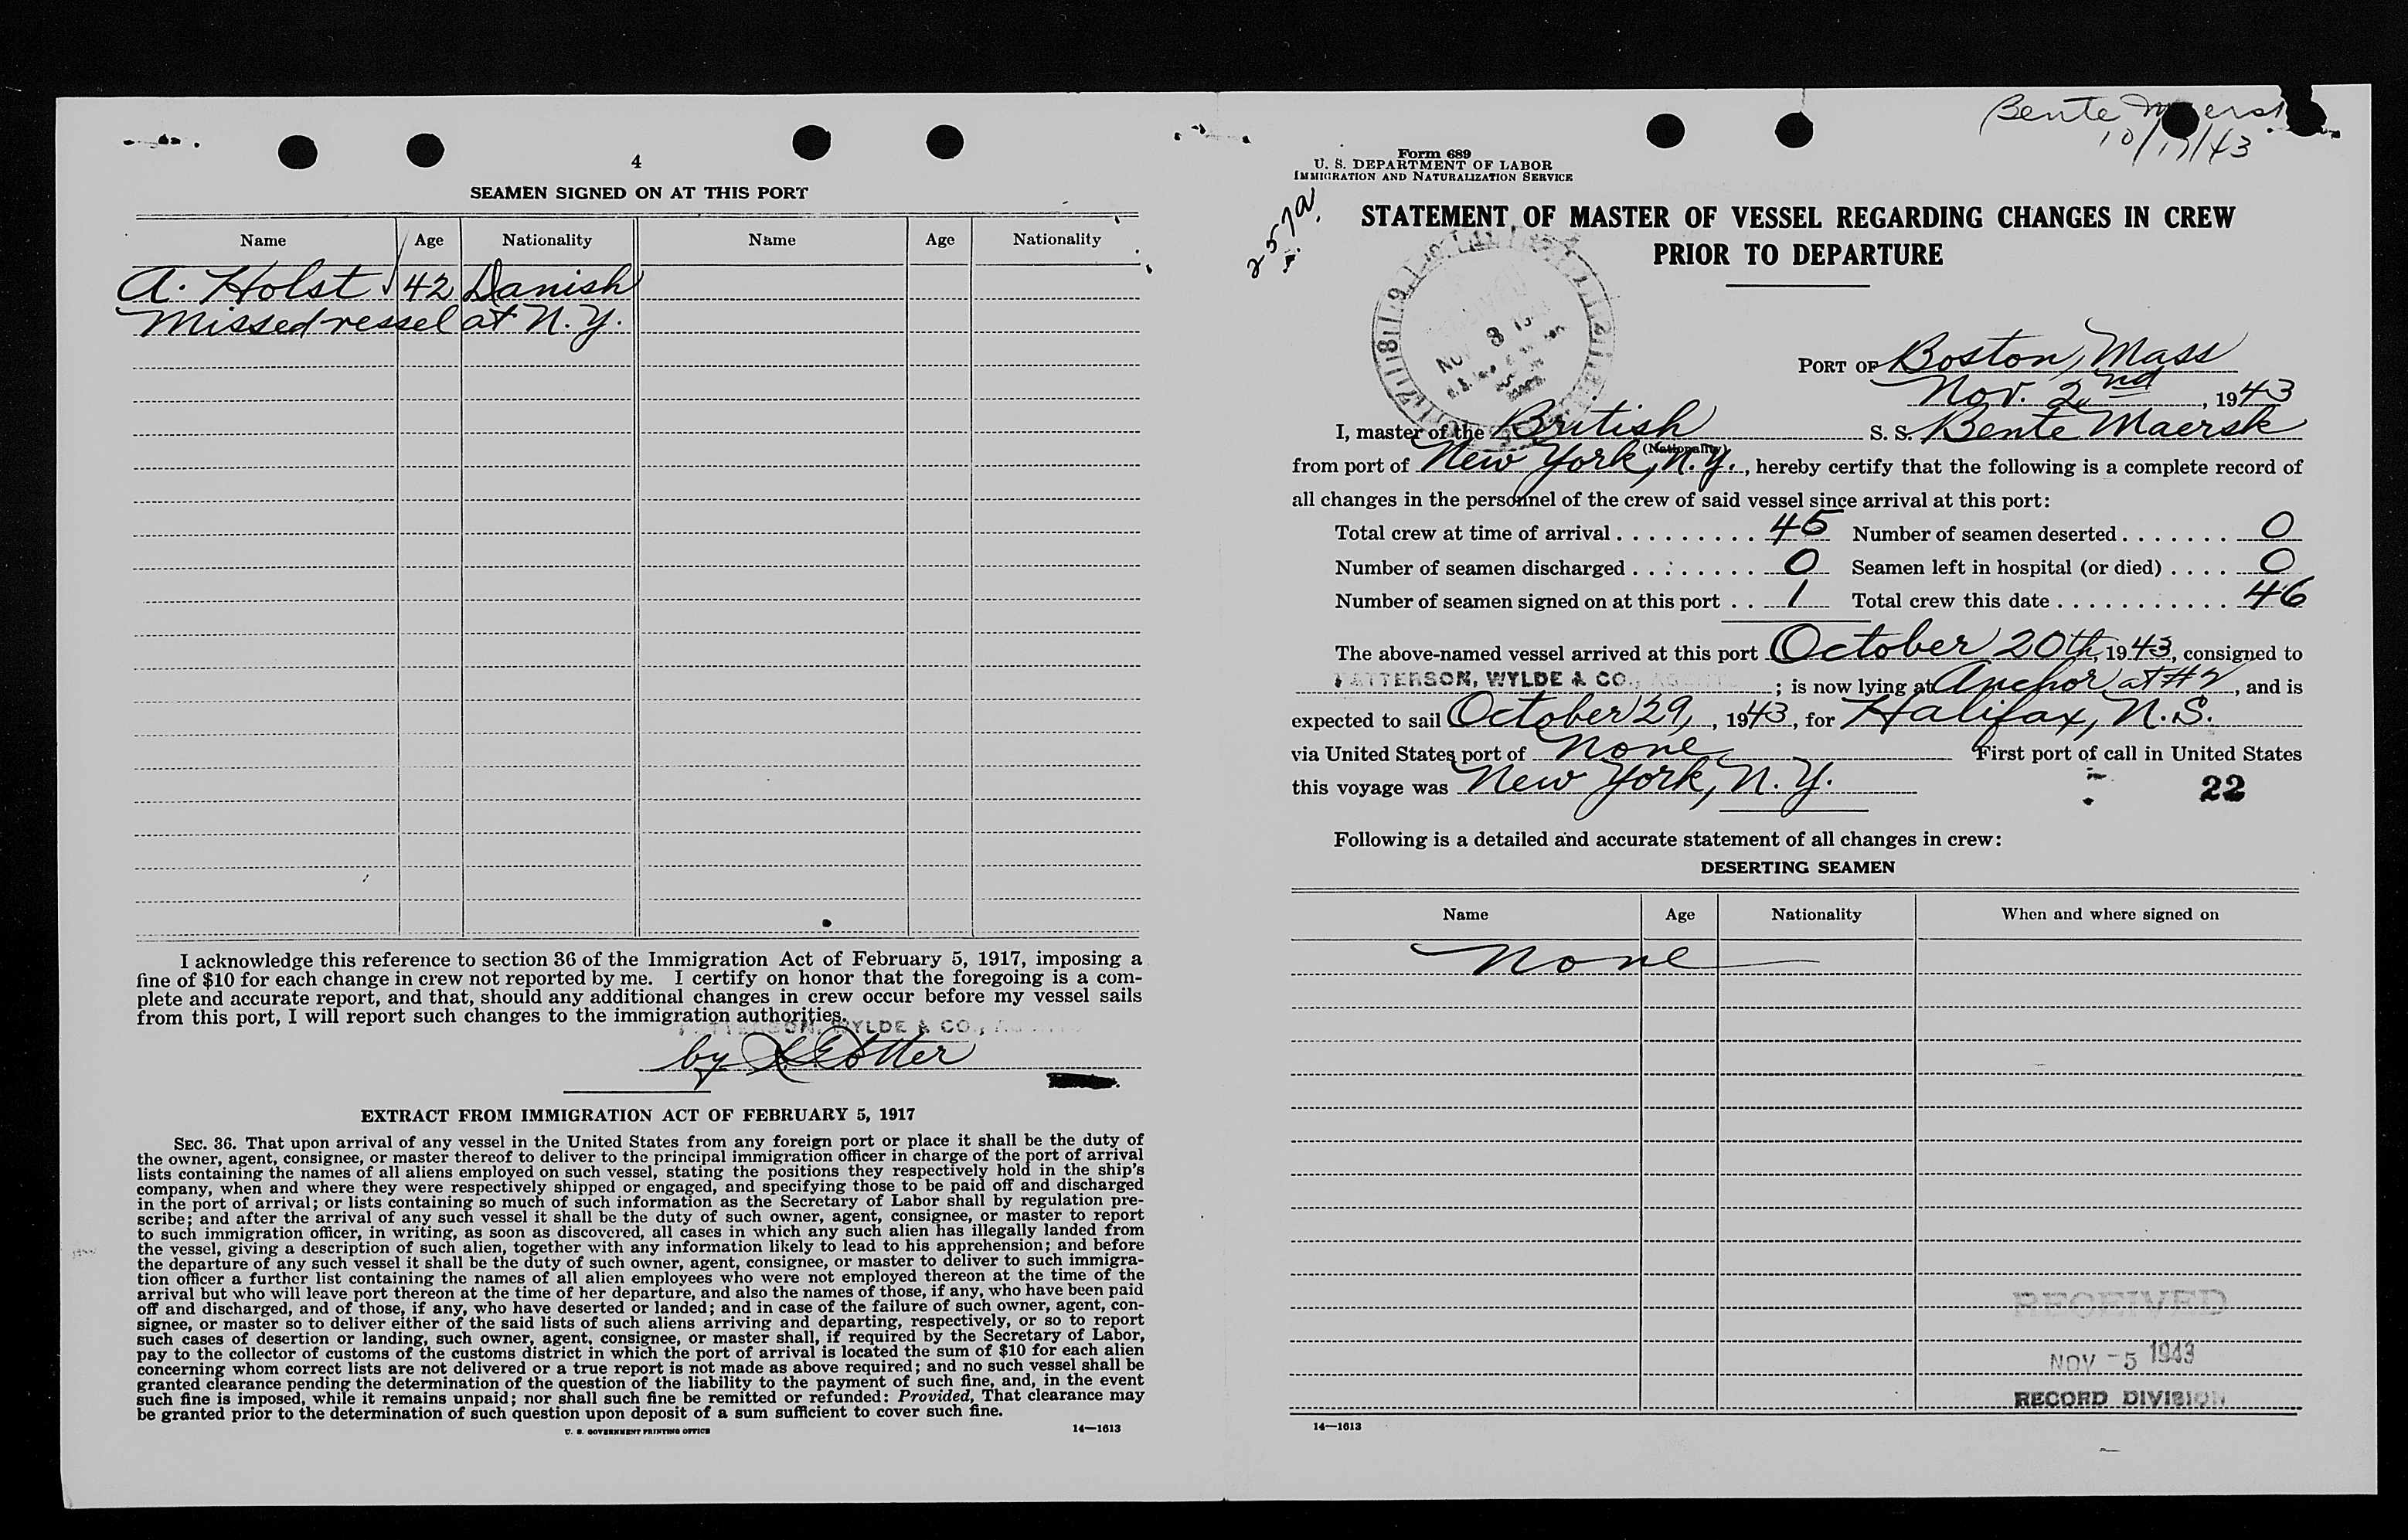 4
SEAMEN SIGNED ON AT THIS PORT
Name Age Nationality Name Age Nationality
A. Holst 42 Danish
Missed vessel at N.Y.
I acknowledge this reference to section 36 of the Immigration Act of February 5, 1917, imposing a
fine of $10 for each change in crew not reported by me. I certify on honor that the foregoing is a com-
plete and accurate report, and that, should any additional changes in crew occur before my vessel sails
from this port, I will report such changes to the immigration authorities.
PATTERSON, WYLDE & CO.,
by
EXTRACT FROM IMMIGRATION ACT OF FEBRUARY 5, 1917
SEC. 36. That upon arrival of any vessel in the United States from any foreign port or place it shall be the duty of
the owner, agent, consignee, or master thereof to deliver to the principal immigration officer in charge of the port of arrival
lists containing the names of all aliens employed on such vessel, stating the positions they respectively hold in the ship's
company, when and where they were respectively shipped or engaged, and specifying those to be paid off and discharged
in the port of arrival; or lists containing so much of such information as the Secretary of Labor shall by regulation pre-
scribe; and after the arrival of any such vessel it shall be the duty of such owner, agent, consignee, or master to report
to such immigration officer, in writing, as soon as discovered, all cases in which any such alien has illegally landed from
the vessel, giving a description of such alien, together with any information likely to lead to his apprehension; and before
the departure of any such vessel it shall be the duty of such owner, agent, consignee, or master to deliver to such immigra-
tion officer a further list containing the names of all alien employees who were not employed thereon at the time of the
arrival but who will leave port thereon at the time of her departure, and also the names of those, if any, who have been paid
off and discharged, and of those, if any, who have deserted or landed; and in case of the failure of such owner, agent, con-
signee, or master so to deliver either of the said lists of such aliens arriving and departing, respectively, or so to report
such cases of desertion or landing, such owner, agent, consignee, or master shall, if required by the Secretary of Labor,
pay to the collector of customs of the customs district in which the port of arrival is located the sum of $10 for each alien
concerning whom correct lists are not delivered or a true report is not made as above required; and no such vessel shall be
granted clearance pending the determination of the question of the liability to the payment of such fine, and, in the event
such fine is imposed, while it remains unpaid; nor shall such fine be remitted or refunded: Provided, That clearance may
be granted prior to the determination of such question upon deposit of a sum sufficient to cover such fine.
U. S. GOVERNMENT PRINTING OFFICE 14—1613
Bente Maersk
10/17/43
Form 689
U. S. DEPARTMENT OF LABOR
IMMIGRATION AND NATURALIZATION SERVICE
STATEMENT OF MASTER OF VESSEL REGARDING CHANGES IN CREW
PRIOR TO DEPARTURE
PORT OF Boston, Mass
Nov. 2nd, 1943
I, master of the British S. S. Bente Maersk
(Nationality)
from port of New York, N.Y., hereby certify that the following is a complete record of
all changes in the personnel of the crew of said vessel since arrival at this port:
Total crew at time of arrival 45 Number of seamen deserted 0
Number of seamen discharged 0 Seamen left in hospital (or died) 0
Number of seamen signed on at this port 1 Total crew this date 46
The above-named vessel arrived at this port October 20th, 1943, consigned to
PATTERSON, WYLDE & CO., ; is now lying at Anchor at #2, and is
expected to sail October 29, 1943, for Halifax, N.S.
via United States port of None First port of call in United States
this voyage was New York, N.Y.
22
Following is a detailed and accurate statement of all changes in crew:
DESERTING SEAMEN
Name Age Nationality When and where signed on
None
RECEIVED
NOV -5 1943
RECORD DIVISION
14—1613